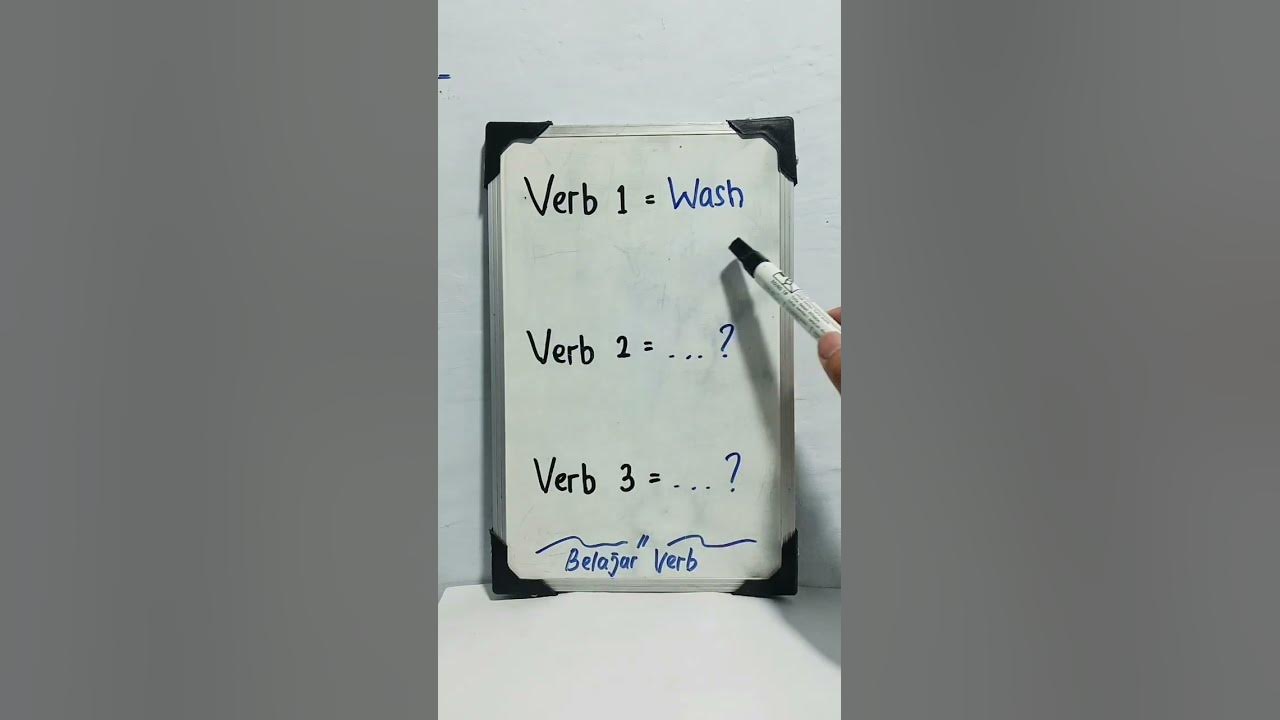 Verb 1 = Wash
Verb 2 = ...?
Verb 3 = ...?
Belajar Verb